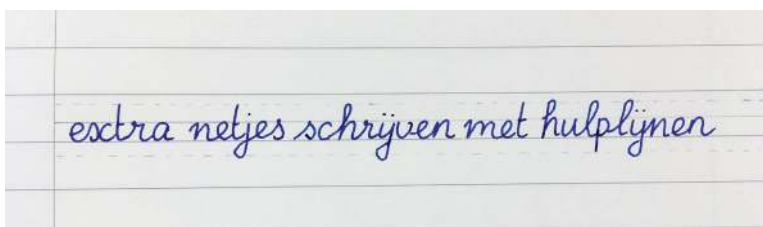 extra netjes schrijven met hulplijnen